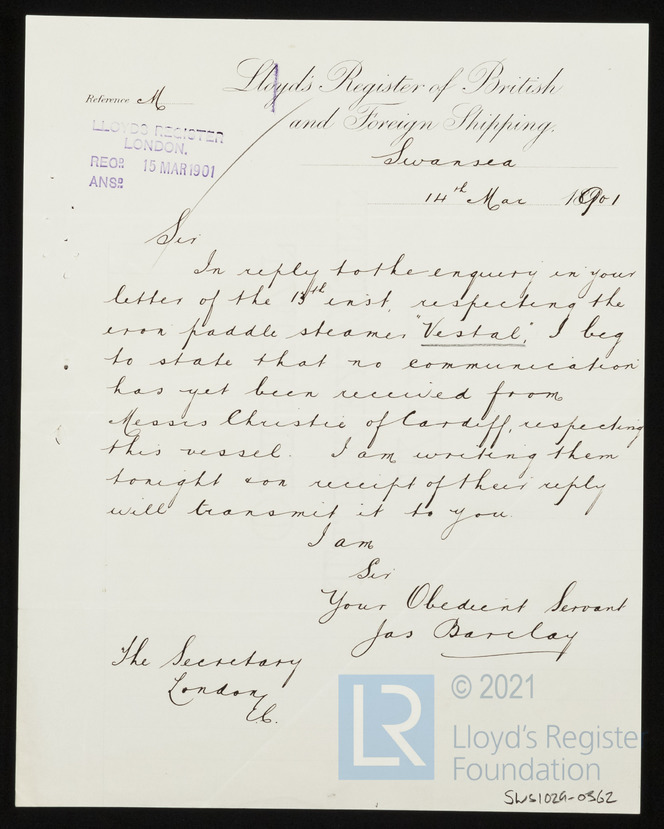 Lloyd's Register of British
and Foreign Shipping.
Reference M
LLOYDS REGISTER
LONDON.
REC^D. 15 MAR 1901
ANS^D.
Swansea
14th Mar 1901
Sir
In reply to the enquiry in your
letter of the 13th inst, respecting the
iron paddle steamer "Vestal", I beg
to state that no communication
has yet been received from
Messrs Christie of Cardiff, respecting
this vessel. I am writing them
tonight & on receipt of their reply
will transmit it to you.
I am
Sir
Your Obedient Servant
Jas Barclay
The Secretary
London
E.C.
LR
© 2021
Lloyd's Register
Foundation
SWS1029-0362